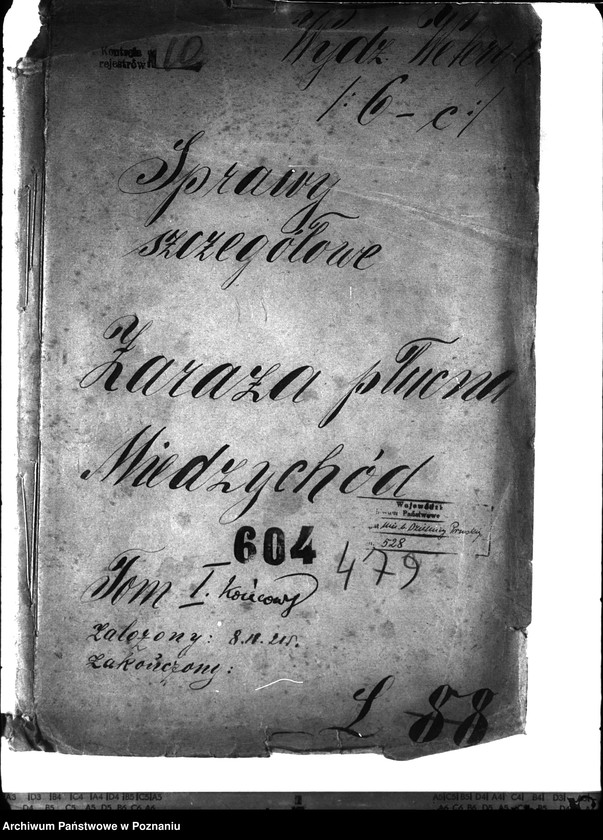 Kontrola
rejestrów 10
Wydz. Weteryn.
/: 6 - c :/
Sprawy
szczegółowe
Zaraza płucna
Miedzychód
Wojewódzk
Państwowe
528
604
479
Tom I. Końcowy
Założony:
Zakończony:
L 88
Archiwum Państwowe w Poznaniu